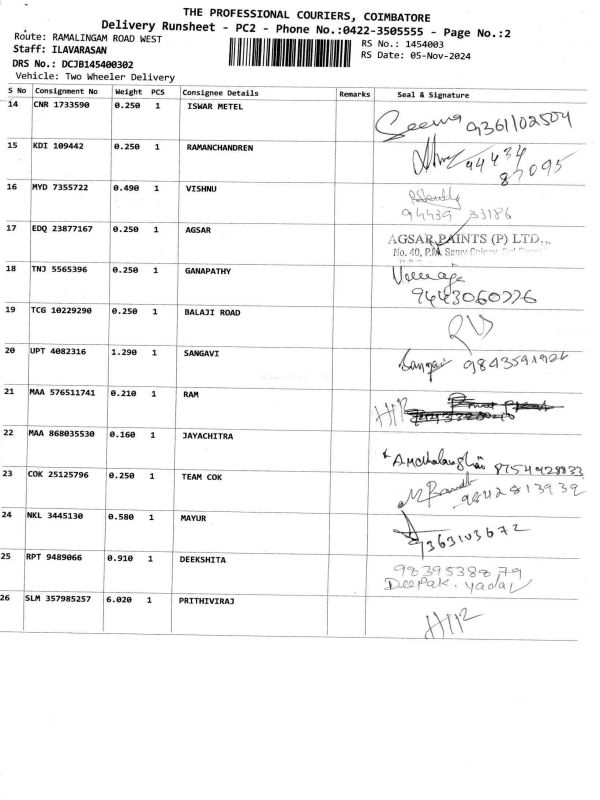 THE PROFESSIONAL COURIERS, COIMBATORE
Delivery Runsheet - PC2 - Phone No.:0422-3505555 - Page No.:2
Route: RAMALINGAM ROAD WEST
RS No.: 1454003
Staff: ILAVARASAN
RS Date: 05-Nov-2024
DRS No.: DCJB145400302
Vehicle: Two Wheeler Delivery
S No Consignment No Weight PCS Consignee Details Remarks Seal & Signature
14 CNR 1733590 0.250 1 ISWAR METEL
Seema 9361102504
15 KDI 109442 0.250 1 RAMANCHANDREN
94434
87095
16 MYD 7355722 0.490 1 VISHNU
94439 33186
17 EDQ 23877167 0.250 1 AGSAR
AGSAR PAINTS (P) LTD.,
No. 40, P.M. Samy Colony,
18 TNJ 5565396 0.250 1 GANAPATHY
9443060776
19 TCG 10229290 0.250 1 BALAJI ROAD
20 UPT 4082316 1.290 1 SANGAVI
Sangavi 984359
21 MAA 576511741 0.210 1 RAM
22 MAA 868035530 0.160 1 JAYACHITRA
8754928833
23 COK 25125796 0.250 1 TEAM COK
9842813939
24 NKL 3445130 0.580 1 MAYUR
9363103672
25 RPT 9489066 0.910 1 DEEKSHITA
9839538879
Deepak. yadav
26 SLM 357985257 6.020 1 PRITHIVIRAJ